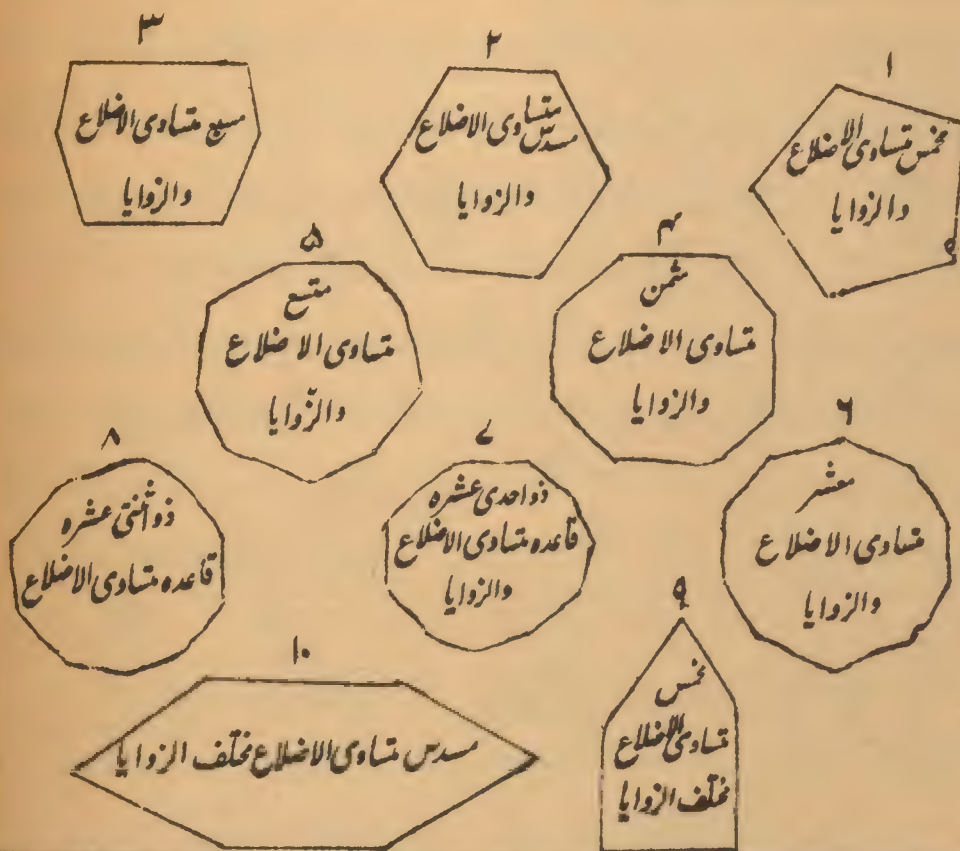 ١
مخمس متساوى الاضلاع
والزوايا
٢
مسدس متساوى الاضلاع
والزوايا
٣
مسبع متساوى الاضلاع
والزوايا
۴
مثمن
متساوى الاضلاع
والزوايا
۵
متسع
متساوى الاضلاع
والزّوايا
۶
معشر
متساوى الاضلاع
والزوايا
۷
ذو احدى عشره
قاعده متساوى الاضلاع
والزوايا
۸
ذو أثنتى عشره
قاعده متساوى الاضلاع
۹
مخمس
متساوى الاضلاع
مختلف الزوايا
۱۰
مسدس متساوى الاضلاع مختلف الزوايا